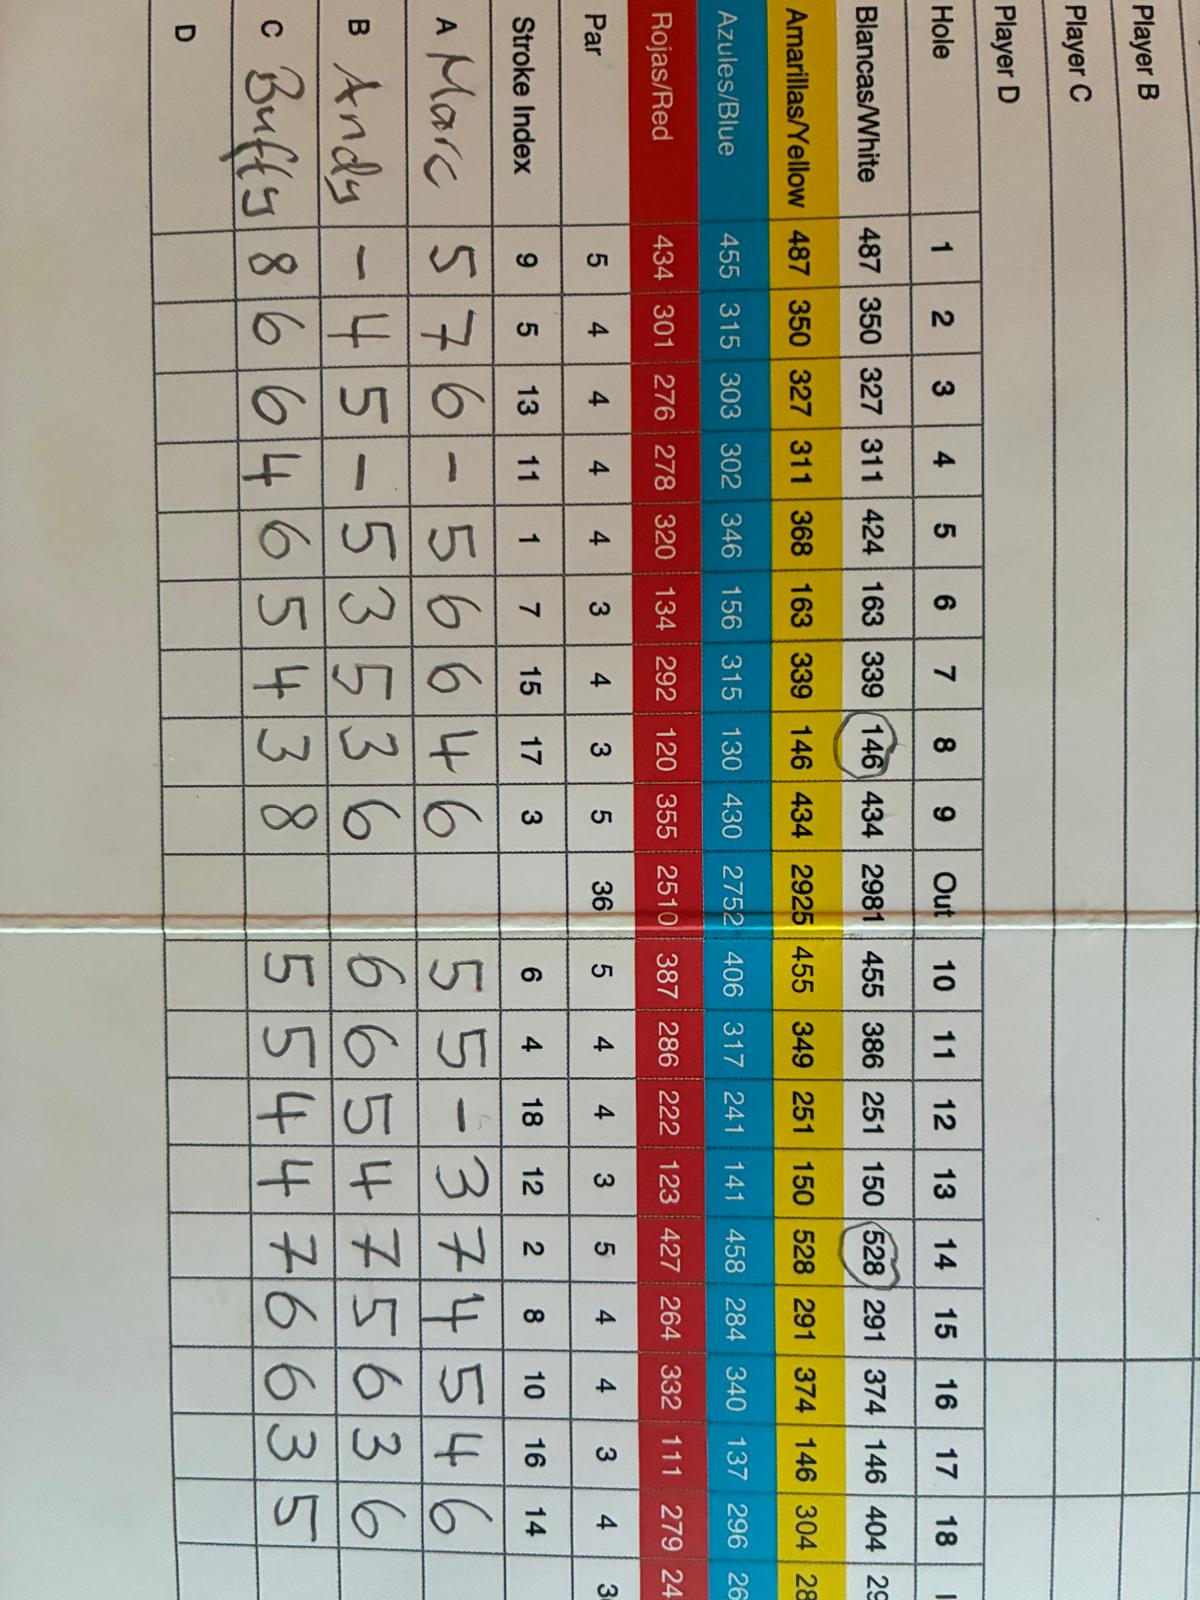 Player B
Player C
Player D
Hole 1 2 3 4 5 6 7 8 9 Out 10 11 12 13 14 15 16 17 18 I
Blancas/White 487 350 327 311 424 163 339 146 434 2981 455 386 251 150 528 291 374 146 404 29
Amarillas/Yellow 487 350 327 311 368 163 339 146 434 2925 455 349 251 150 528 291 374 146 304 28
Azules/Blue 455 315 303 302 346 156 315 130 430 2752 406 317 241 141 458 284 340 137 296 26
Rojas/Red 434 301 276 278 320 134 292 120 355 2510 387 286 222 123 427 264 332 111 279 24
Par 5 4 4 4 4 3 4 3 5 36 5 4 4 3 5 4 4 3 4 3
Stroke Index 9 5 13 11 1 7 15 17 3 6 4 18 12 2 8 10 16 14
A Marc 5 7 6 - 5 6 6 4 6 5 5 - 3 7 4 5 4 6
B Andy - 4 5 - 5 3 5 3 6 6 6 5 4 7 5 6 3 6
C Buffy 8 6 6 4 6 5 4 3 8 5 5 4 4 7 6 6 3 5
D